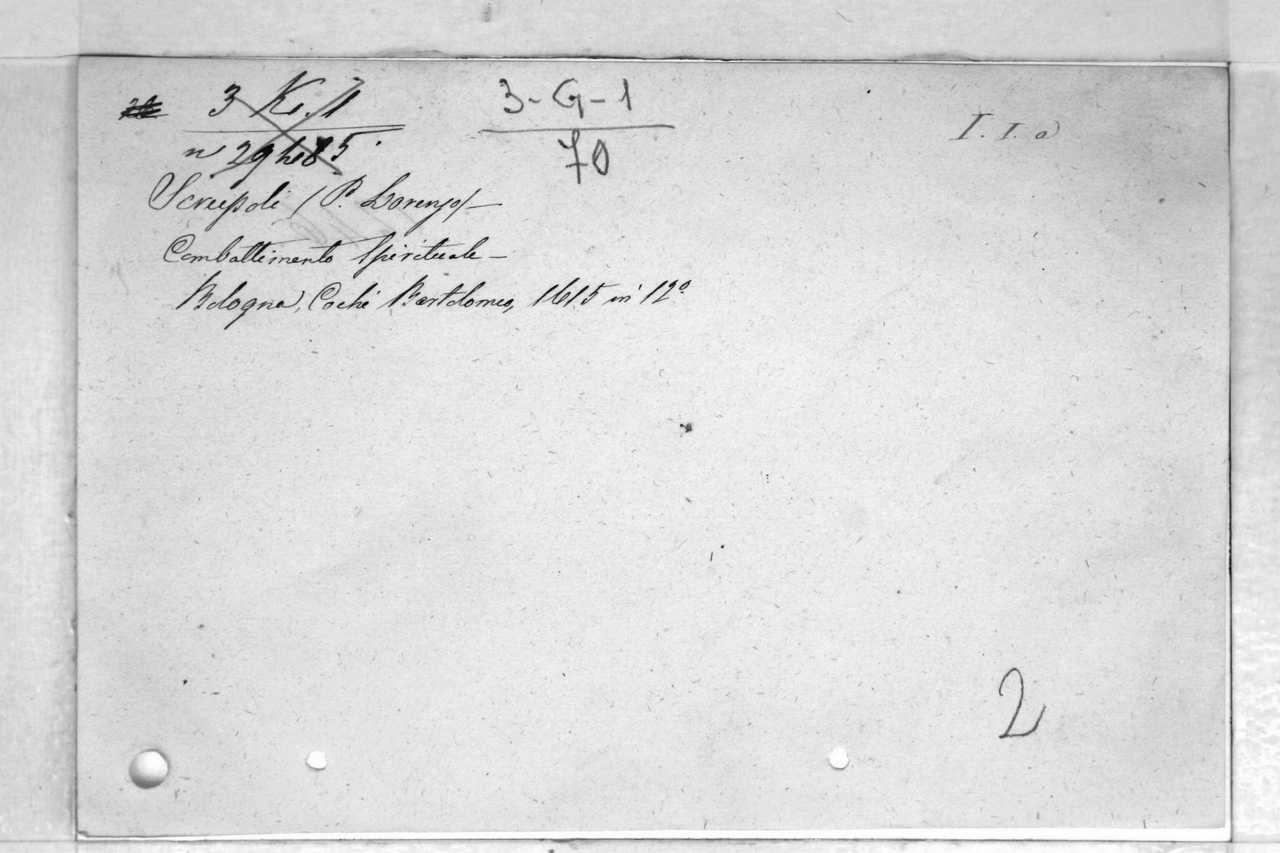 3 K. 1
3-G-1
70
I. I. a
Scrupoli (P. Lorenzo) —
Combattimento Spirituale —
Bologna, Cochi Bartolomeo, 1615 in 12º
2